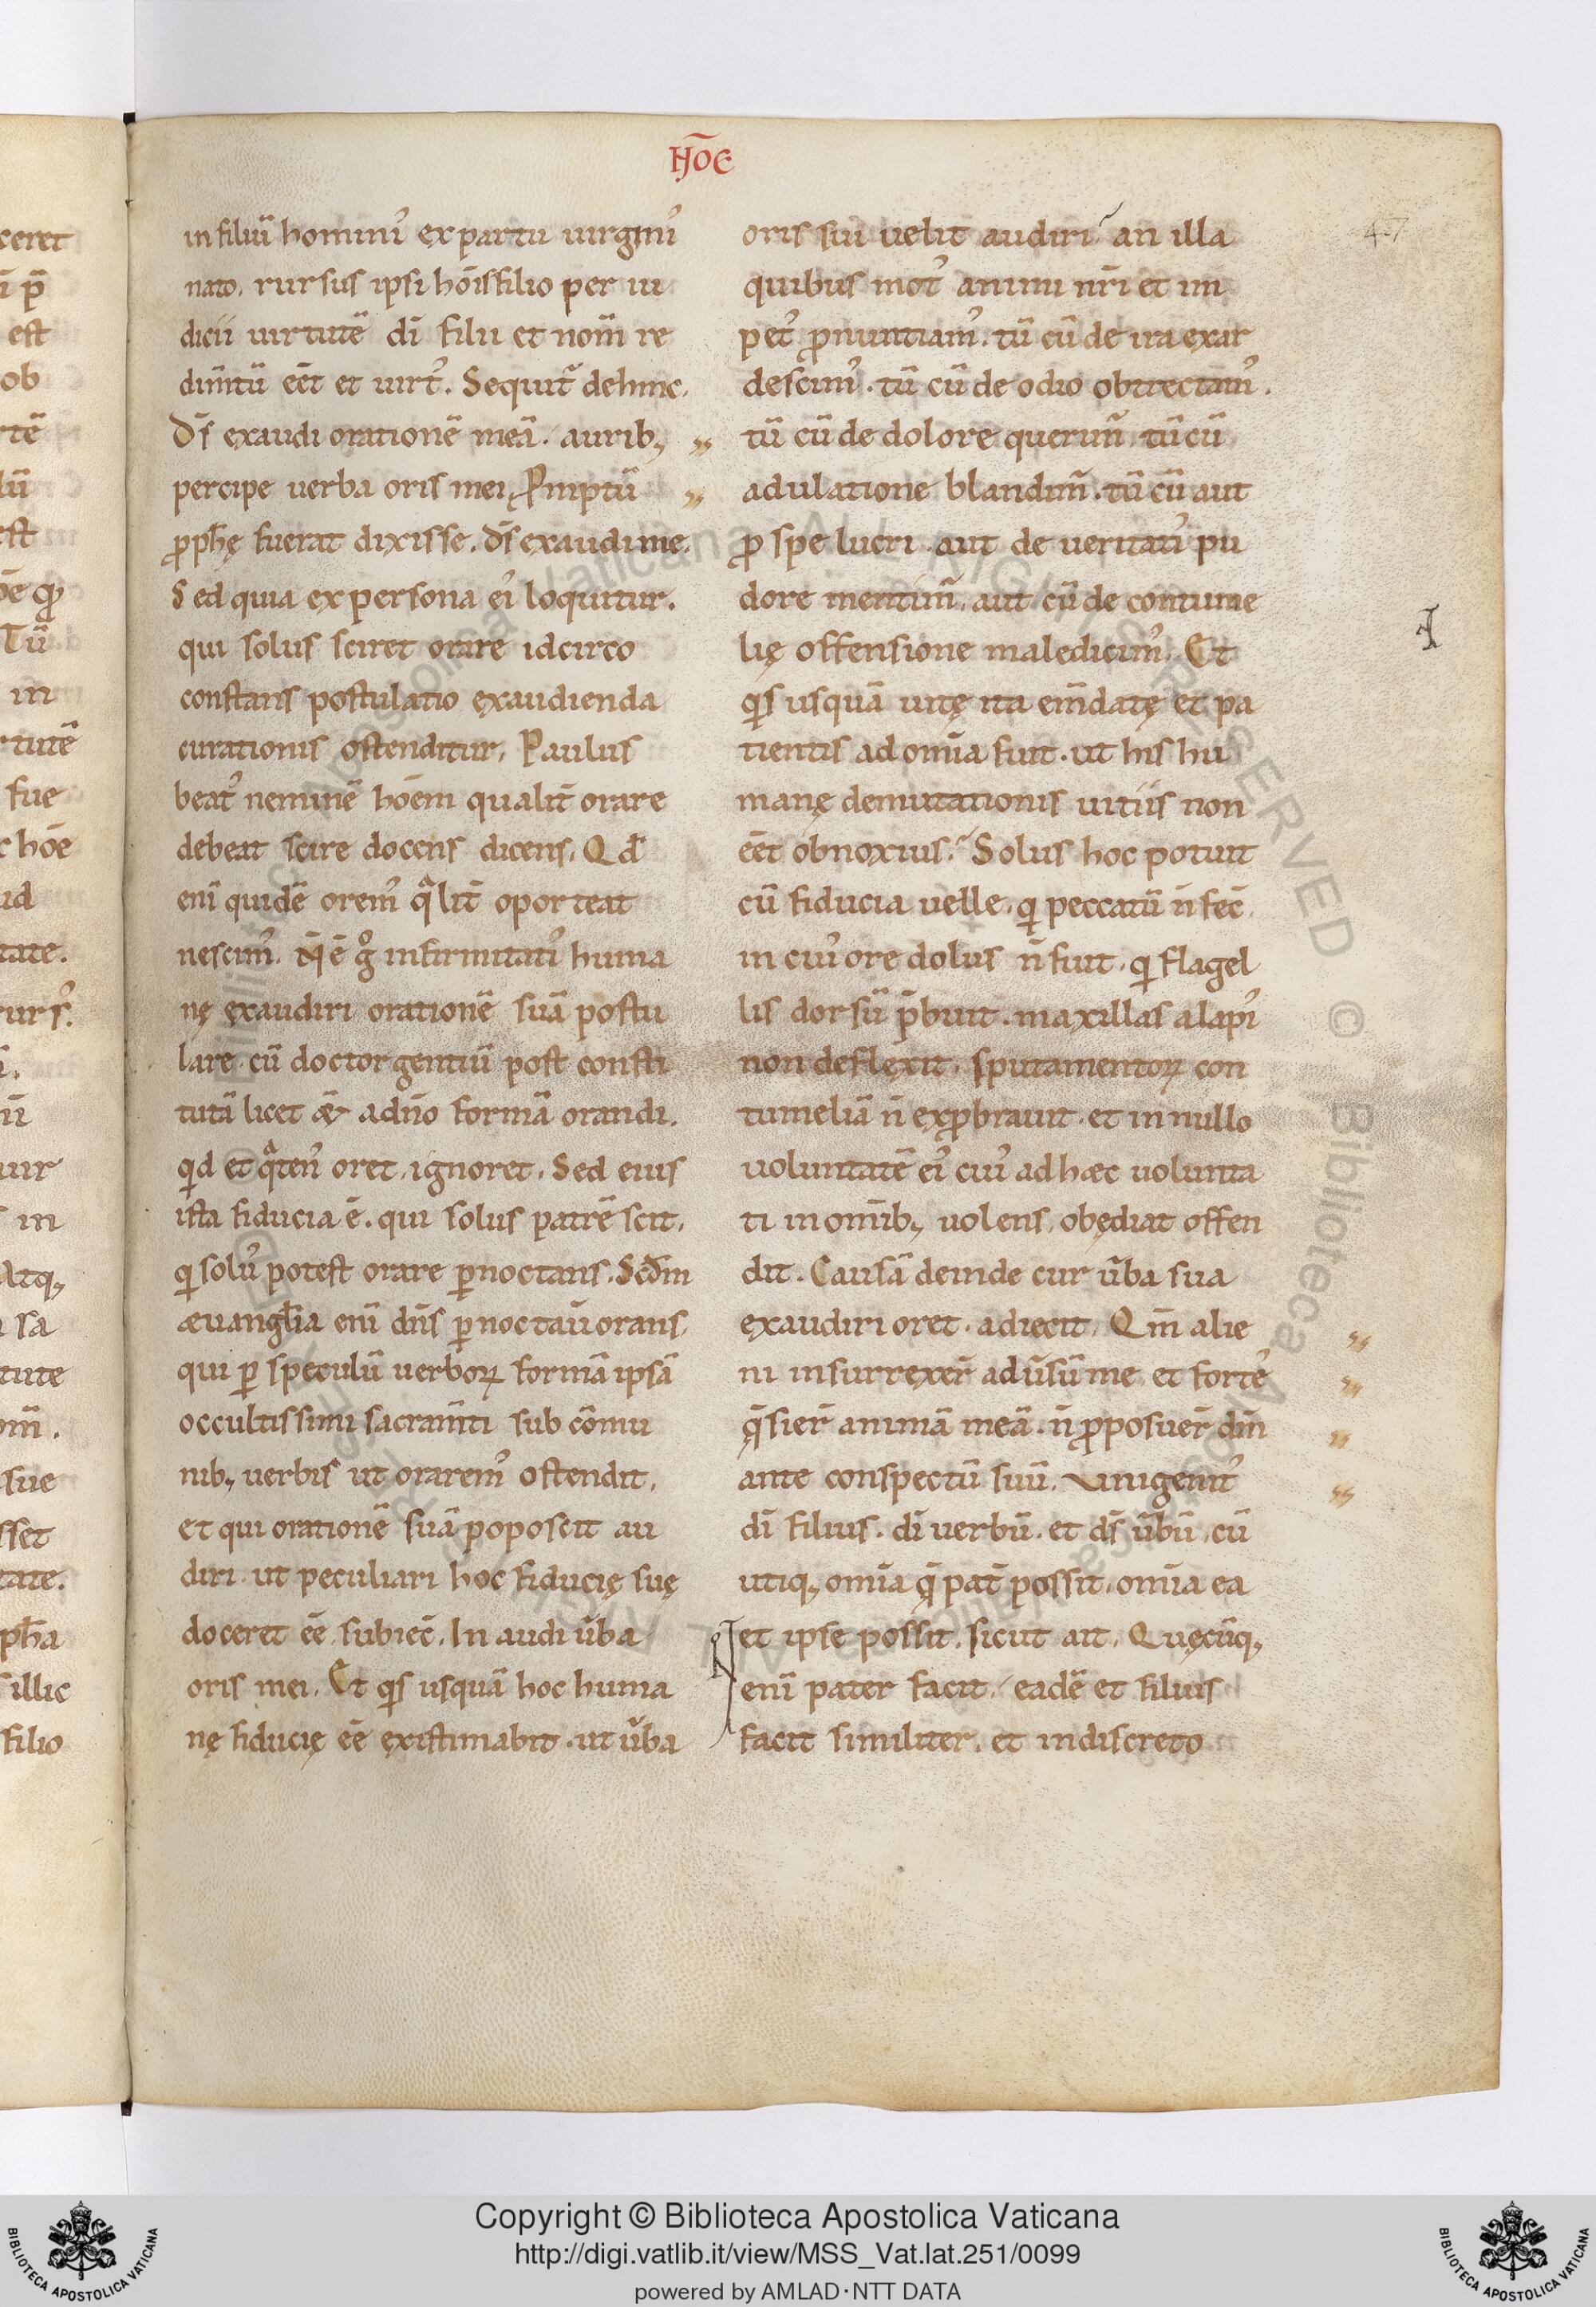 HōE
47
in filiū hominı᷒ ex partu uirginı᷒
nato. rursus ipsi hōis filio per iu
dicii uirtutē dī filii et nom̄ re
dim̄tū eēt et uirt᷒. Sequit̄ dehinc.
Ds̄ exaudi orationē meā. aurib;
percipe uerba oris mei. Pmptū
ꝓph̄ę fuerat dixisse. ds̄ exaudi me.
Sed quia ex persona eı᷒ loquitur.
qui solus sciret orare idcirco
constans postulatio exaudienda
curationis ostenditur. Paulus
beat᷒ neminē hōem qualit̄ orare
debeat scire docens dicens. Qđ
eni quidē orem᷒ qͣlit̄ oporteat
nescim᷒. N̄ ē gͦ infirmitatı᷒ huma
nę exaudiri orationē suā postu
lare. cū doctor gentiū post consti
tutā licet & a dn̄o formā orandi.
qͥd et qͣten᷒ oret. ignoret. Sed eius
ista fiducia ē. qui solus patrē scit.
qͥ solu᷒ potest orare ꝑnoctans. Scđm
æuangłia eni dn̄s ꝑnoctaū orans.
qui ꝑ speculū uerboꝝ formā ipsā
occultissimi sacram̄ti sub cōmu
nib; uerbis ut orarem᷒ ostendit.
et qui orationē suā poposcit au
diri. ut peculiari hoc fiducię suę
doceret eē subiec̄. In audi ūba
oris mei. Et qͥs usquā hoc huma
nę fiducię eē existimabit. ut ūba
oris sui uelit audiri? an illa
quibus mot᷒ animi nr̄i et im
pet᷒ ꝓnuntiam᷒. tū cū de ira exar
descim᷒. tū cū de odio obtrectam᷒.
tū cū de dolore querim̄. tū cū
adulatione blandim̄. tū cū aut
ꝓ spe lucri. aut de ueritatı᷒ pu
dore mentim̄. aut cū de contume
lię offensione maledicim᷒. Et
qͥs usquā uitę ita em̄datę et pa
tientis ad om̄ia fuit. ut his hu
manę demutationis uitiis non
eēt obnoxius? Solus hoc potuit
cū fiducia uelle. qͥ peccatū n̄ fec̄.
in cui᷒ ore dolus n̄ fuit. qͥ flagel
lis dorsū p̄buit. maxillas alapı᷒
non deflexit. sputamentoꝝ con
tumeliā n̄ exꝓbrauit. et in nullo
uoluntatē eı᷒ cui᷒ ad hæc uolunta
ti in om̄ib; uolens obędiat offen
dit. Causā deinde cur ūba sua
exaudiri oret. adiecit. Qm̄ alie
ni insurrexer̄ adūsū me et forte᷒
q̄sier̄ animā meā. n̄ ꝓposuer̄ dm̄
ante conspectū suū. Unigenit᷒
dī filius. dī uerbū. et ds̄ ūbū. cū
utiq; om̄ia q̄ pat̄ possit. om̄ia ea
et ipse possit. sicut ait. Quęcūq;
eni pater facit. eadē et filius
facit similiter. et indiscreto
Copyright © Biblioteca Apostolica Vaticana
http://digi.vatlib.it/view/MSS_Vat.lat.251/0099
powered by AMLAD·NTT DATA